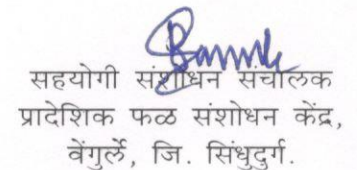 सहयोगी संशोधन संचालक
प्रादेशिक फळ संशोधन केंद्र,
वेंगुर्ले, जि. सिंधुदुर्ग.